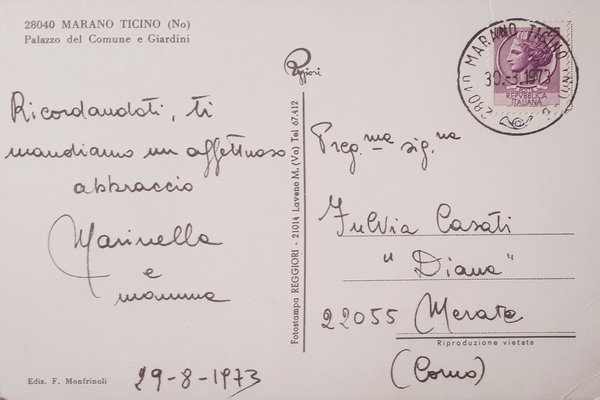 28040 MARANO TICINO (No)
Palazzo del Comune e Giardini
Ricordandoti, ti
mandiamo un affettuoso
abbraccio
Marinella
e
mamma
Ediz. F. Monfrinoli
29-8-1973
Reggiori
Fotostampa REGGIORI - 21014 Laveno M. (Va) Tel. 67.412
28040 MARANO TICINO (NO)
30.-3.1973
REPVBBLICA
ITALIANA
Preg.ma sig.na
Fulvia Casati
"Diana"
22055 Merate
Riproduzione vietata
(Como)